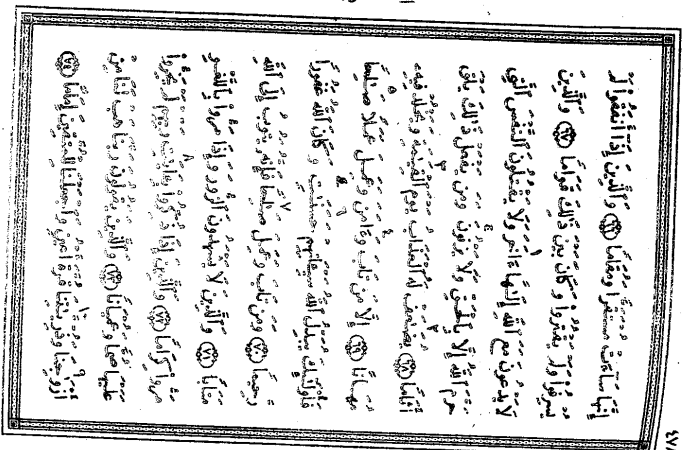 إِنَّهَا سَآءَتْ مُسْتَقَرًّا وَمُقَامًا ﴿٦٦﴾ وَٱلَّذِينَ إِذَآ أَنفَقُوا۟ لَمْ
يُسْرِفُوا۟ وَلَمْ يَقْتُرُوا۟ وَكَانَ بَيْنَ ذَٰلِكَ قَوَامًا ﴿٦٧﴾ وَٱلَّذِينَ
لَا يَدْعُونَ مَعَ ٱللَّهِ إِلَٰهًا ءَاخَرَ وَلَا يَقْتُلُونَ ٱلنَّفْسَ ٱلَّتِى
حَرَّمَ ٱللَّهُ إِلَّا بِٱلْحَقِّ وَلَا يَزْنُونَ وَمَن يَفْعَلْ ذَٰلِكَ يَلْقَ
أَثَامًا ﴿٦٨﴾ يُضَٰعَفْ لَهُ ٱلْعَذَابُ يَوْمَ ٱلْقِيَٰمَةِ وَيَخْلُدْ فِيهِۦ
مُهَانًا ﴿٦٩﴾ إِلَّا مَن تَابَ وَءَامَنَ وَعَمِلَ عَمَلًا صَٰلِحًا
فَأُو۟لَٰٓئِكَ يُبَدِّلُ ٱللَّهُ سَيِّـَٔاتِهِمْ حَسَنَٰتٍ وَكَانَ ٱللَّهُ غَفُورًا
رَّحِيمًا ﴿٧٠﴾ وَمَن تَابَ وَعَمِلَ صَٰلِحًا فَإِنَّهُۥ يَتُوبُ إِلَى ٱللَّهِ
مَتَابًا ﴿٧١﴾ وَٱلَّذِينَ لَا يَشْهَدُونَ ٱلزُّورَ وَإِذَا مَرُّوا۟ بِٱللَّغْوِ
مَرُّوا۟ كِرَامًا ﴿٧٢﴾ وَٱلَّذِينَ إِذَا ذُكِّرُوا۟ بِـَٔايَٰتِ رَبِّهِمْ لَمْ يَخِرُّوا۟
عَلَيْهَا صُمًّا وَعُمْيَانًا ﴿٧٣﴾ وَٱلَّذِينَ يَقُولُونَ رَبَّنَا هَبْ لَنَا مِنْ
أَزْوَٰجِنَا وَذُرِّيَّٰتِنَا قُرَّةَ أَعْيُنٍ وَٱجْعَلْنَا لِلْمُتَّقِينَ إِمَامًا ﴿٧٤﴾